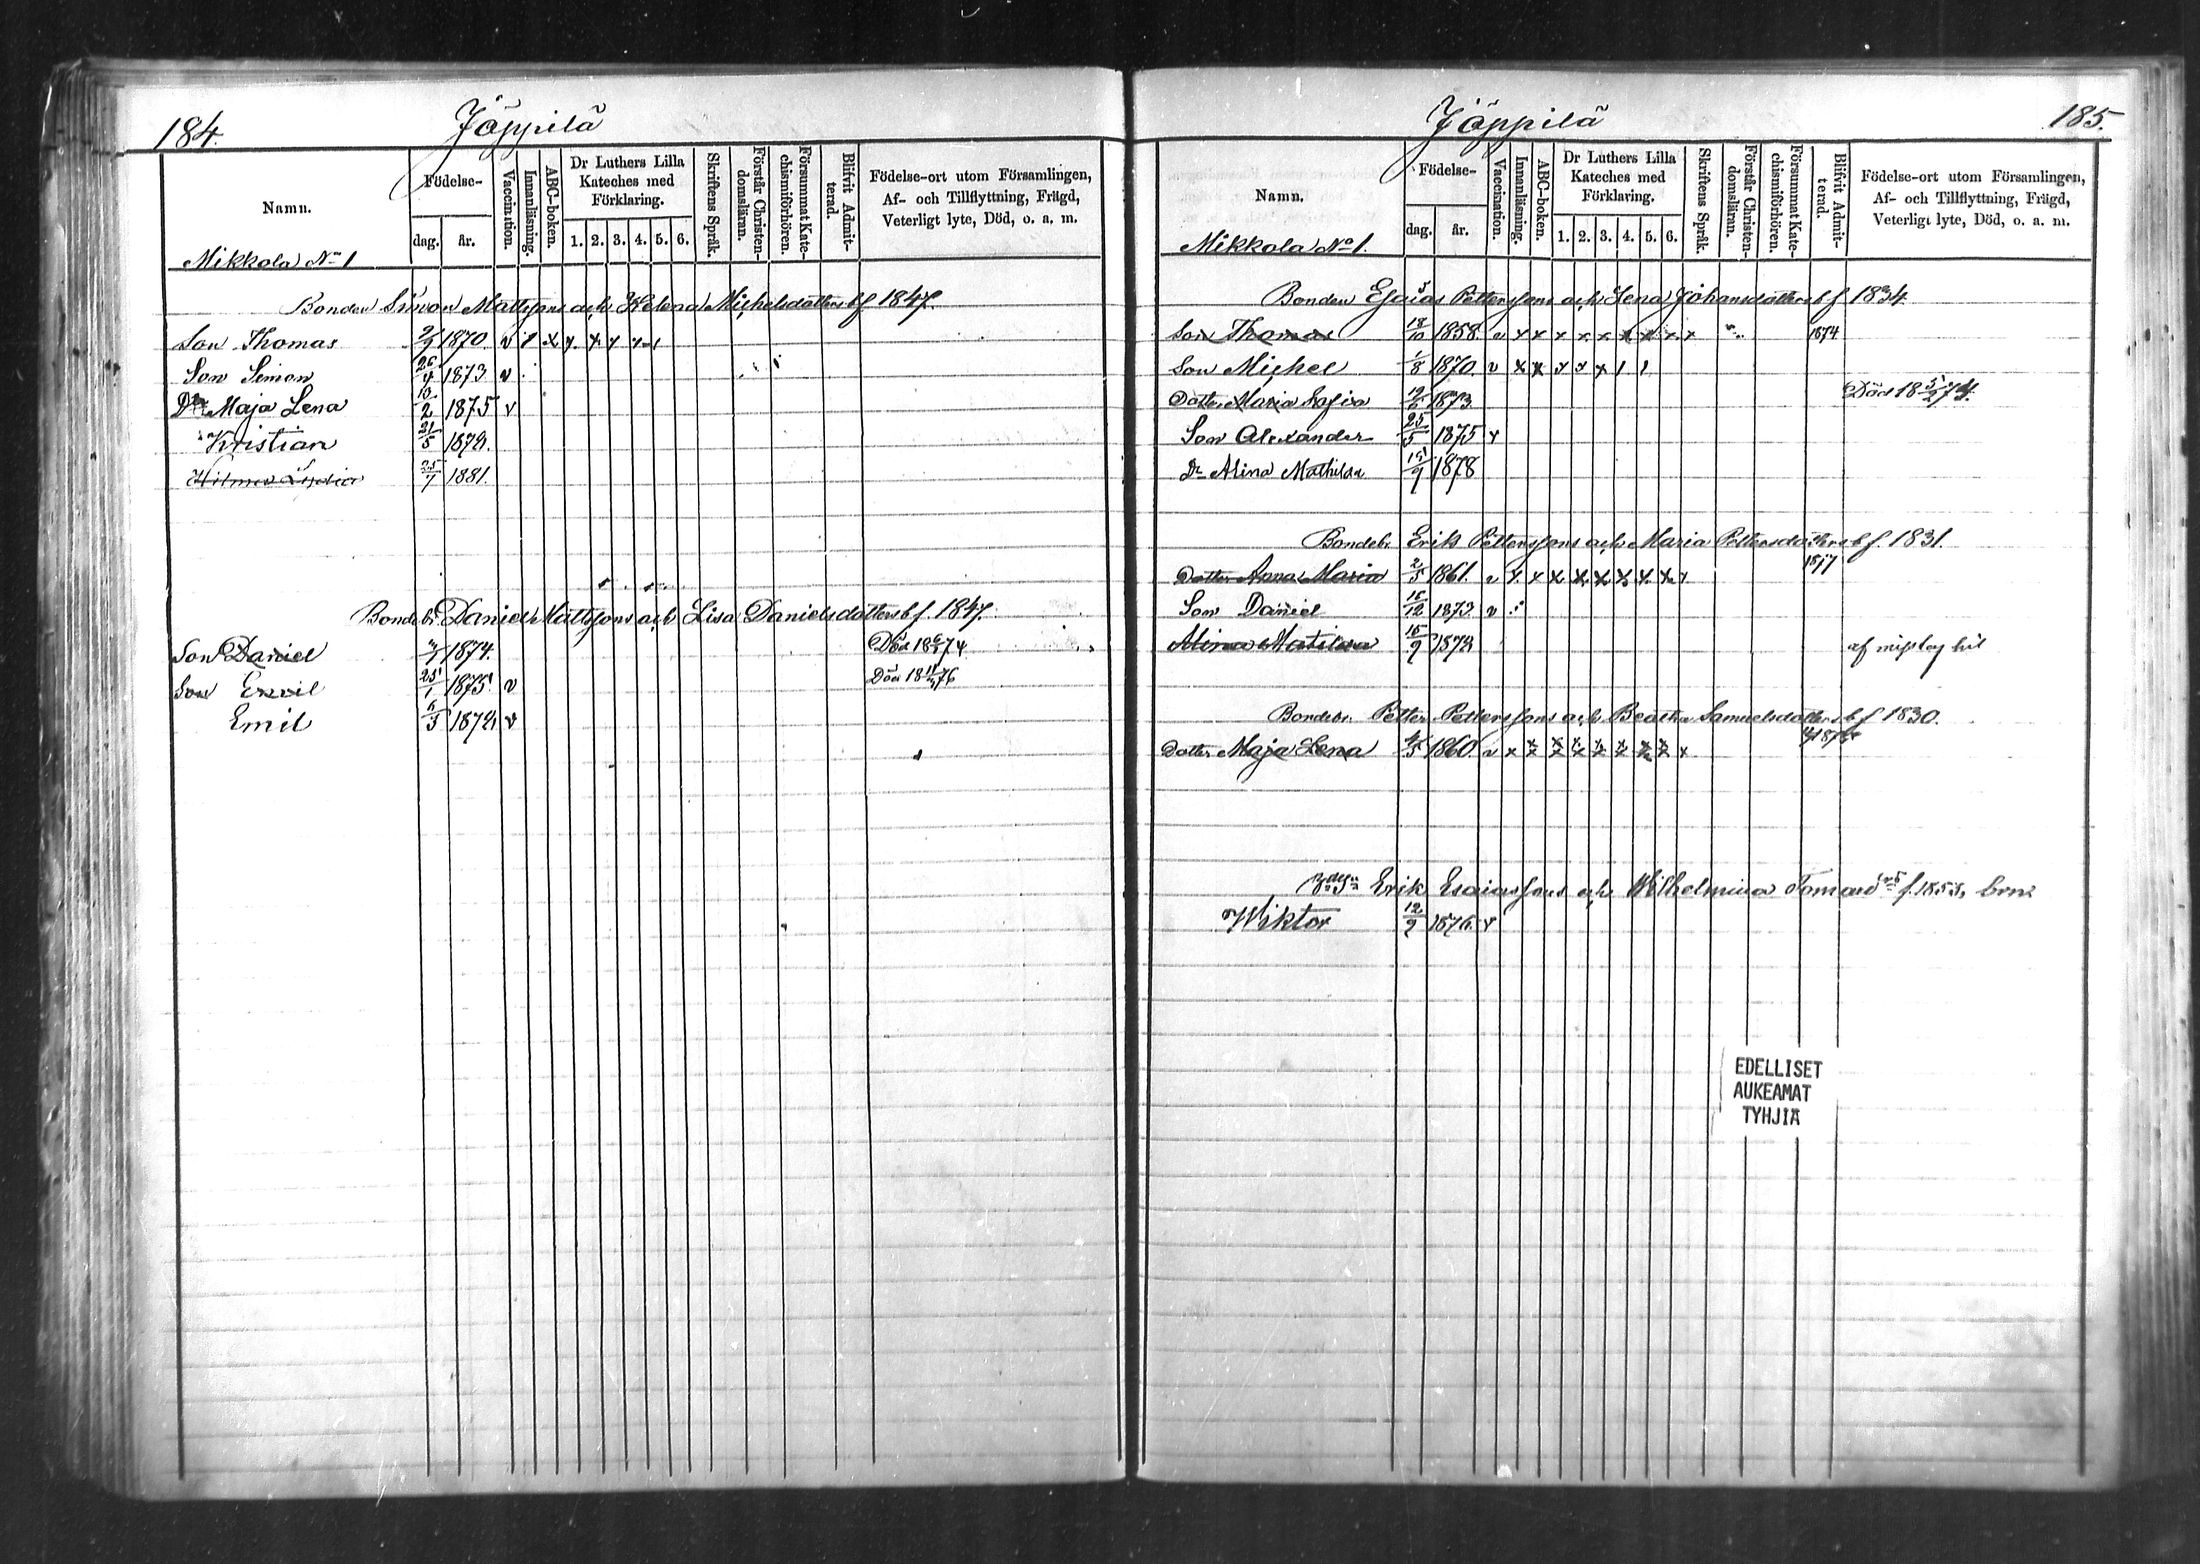 184.
Jäppilä
Namn.
Födelse-
dag. år.
Vaccination.
Innanläsning.
ABC-boken.
Dr Luthers Lilla Kateches med Förklaring.
1. 2. 3. 4. 5. 6.
Skriftens Språk.
Förstår Christendomsläran.
Försummat Katechismiförhören.
Blifvit Admitterad.
Födelse-ort utom Församlingen,
Af- och Tillflyttning, Frägd,
Veterligt lyte, Död, o. a. m.
Mikkola No 1
Bonden Simon Mattssons och Helena Michelsdotters bf 1847.
Son Thomas 1870 v
Son Simon 26/4 1873 v
Dr Maja Lena 10/2 1875 v
Kristian 21/5 1878.
Hilma Lydia 25/7 1881.
Bondebr. Daniel Mattssons och Lisa Danielsdotters bf. 1847.
Son Daniel 1874. Död 18 74
Son Emil 25/1 1875. v Död 18 76
Emil 1878 v
185.
Jäppilä
Namn.
Födelse-
dag. år.
Vaccination.
Innanläsning.
ABC-boken.
Dr Luthers Lilla Kateches med Förklaring.
1. 2. 3. 4. 5. 6.
Skriftens Språk.
Förstår Christendomsläran.
Försummat Katechismiförhören.
Blifvit Admitterad.
Födelse-ort utom Församlingen,
Af- och Tillflyttning, Frägd,
Veterligt lyte, Död, o. a. m.
Mikkola No 1.
Bonden Esaias Petterssons och Lena Johansdotters bf 1834.
Son Thomas 18/10 1858. v x x x x x x x x x 1874
Son Michel 1/8 1870. v x x
Dotter Maria Sofia 1873 Död 18 5/2 74.
Son Alexander 25/5 1875 v
Dr Alina Mathilda 15/9 1878
Bondebr. Erik Petterssons och Maria Pettersdotters bf. 1831.
Dotter Anna Maria 2/5 1861. v x x x x x x x x 1877
Son Daniel 16/12 1873 v
Alina Matilda 15/9 1878
Bondebr. Petter Petterssons och Beata Samuelsdotters bf 1830.
Dotter Maja Lena 4/5 1860. v x x x x x x x x
Erik Esaiassons och Wilhelmina f. 1853, brn:
Wiktor 12/9 1876. v
EDELLISET
AUKEAMAT
TYHJIÄ